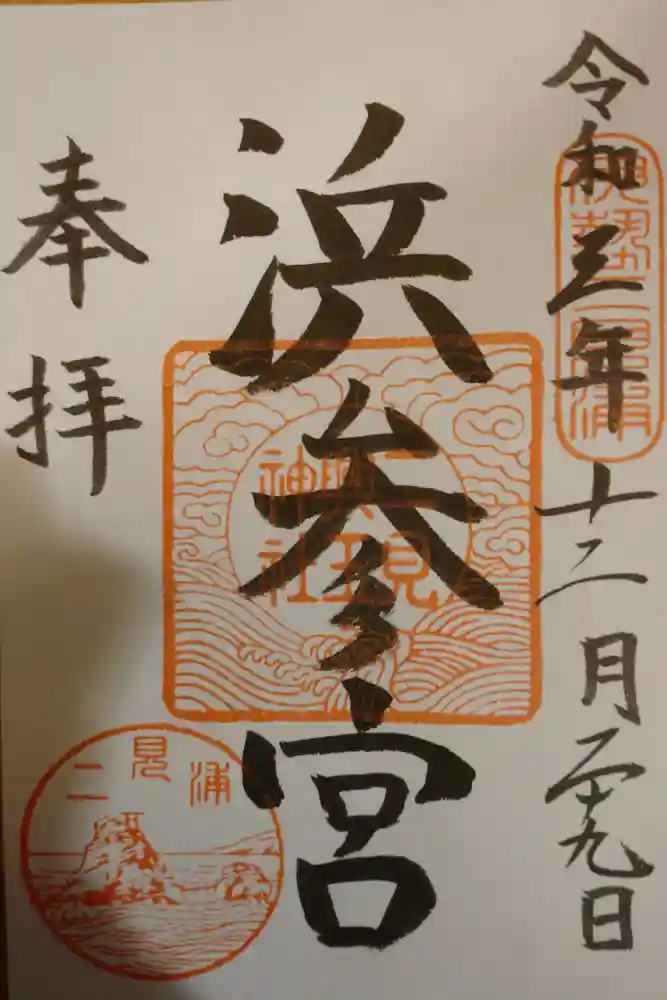 令和三年十二月二十九日
伊勢二見浦
浜参宮
二見
興玉
神社
奉拝
二見浦